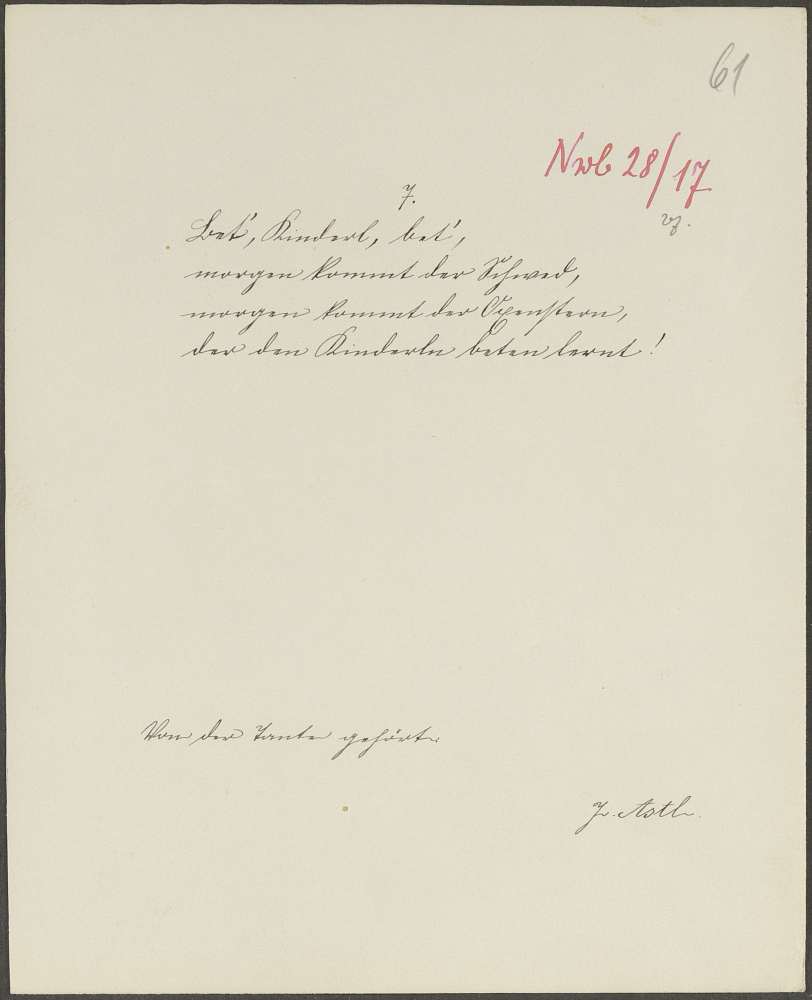 61
Nwb 28/17
7.
Bet', Kinderl, bet',
morgen kommt der Schwed,
morgen kommt der Oxenstern,
der den Kinderln beten lernt!
Von der Tante gehört.
J. Astl.